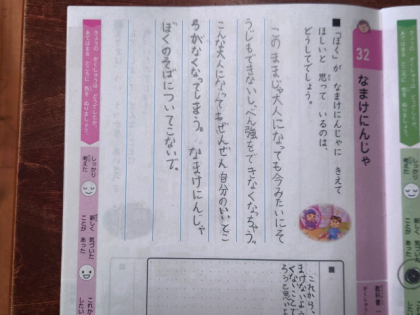 32
なまけにんじゃ
■「ぼく」が なまけにんじゃに きえて
ほしいと 思って いるのは、
どうしてでしょう。
このままじゃ大人になっても今みたいにそ
うじもできないし、べん強をできなくなっちゃう。
こんな大人になってもぜんぜん自分のいいとこ
ろがなくなってしまう。なまけにんじゃ
ぼくのそばについてこないで。
しっかり
考えた
新しく 気づいた
ことが あった
これから
したい
これから、